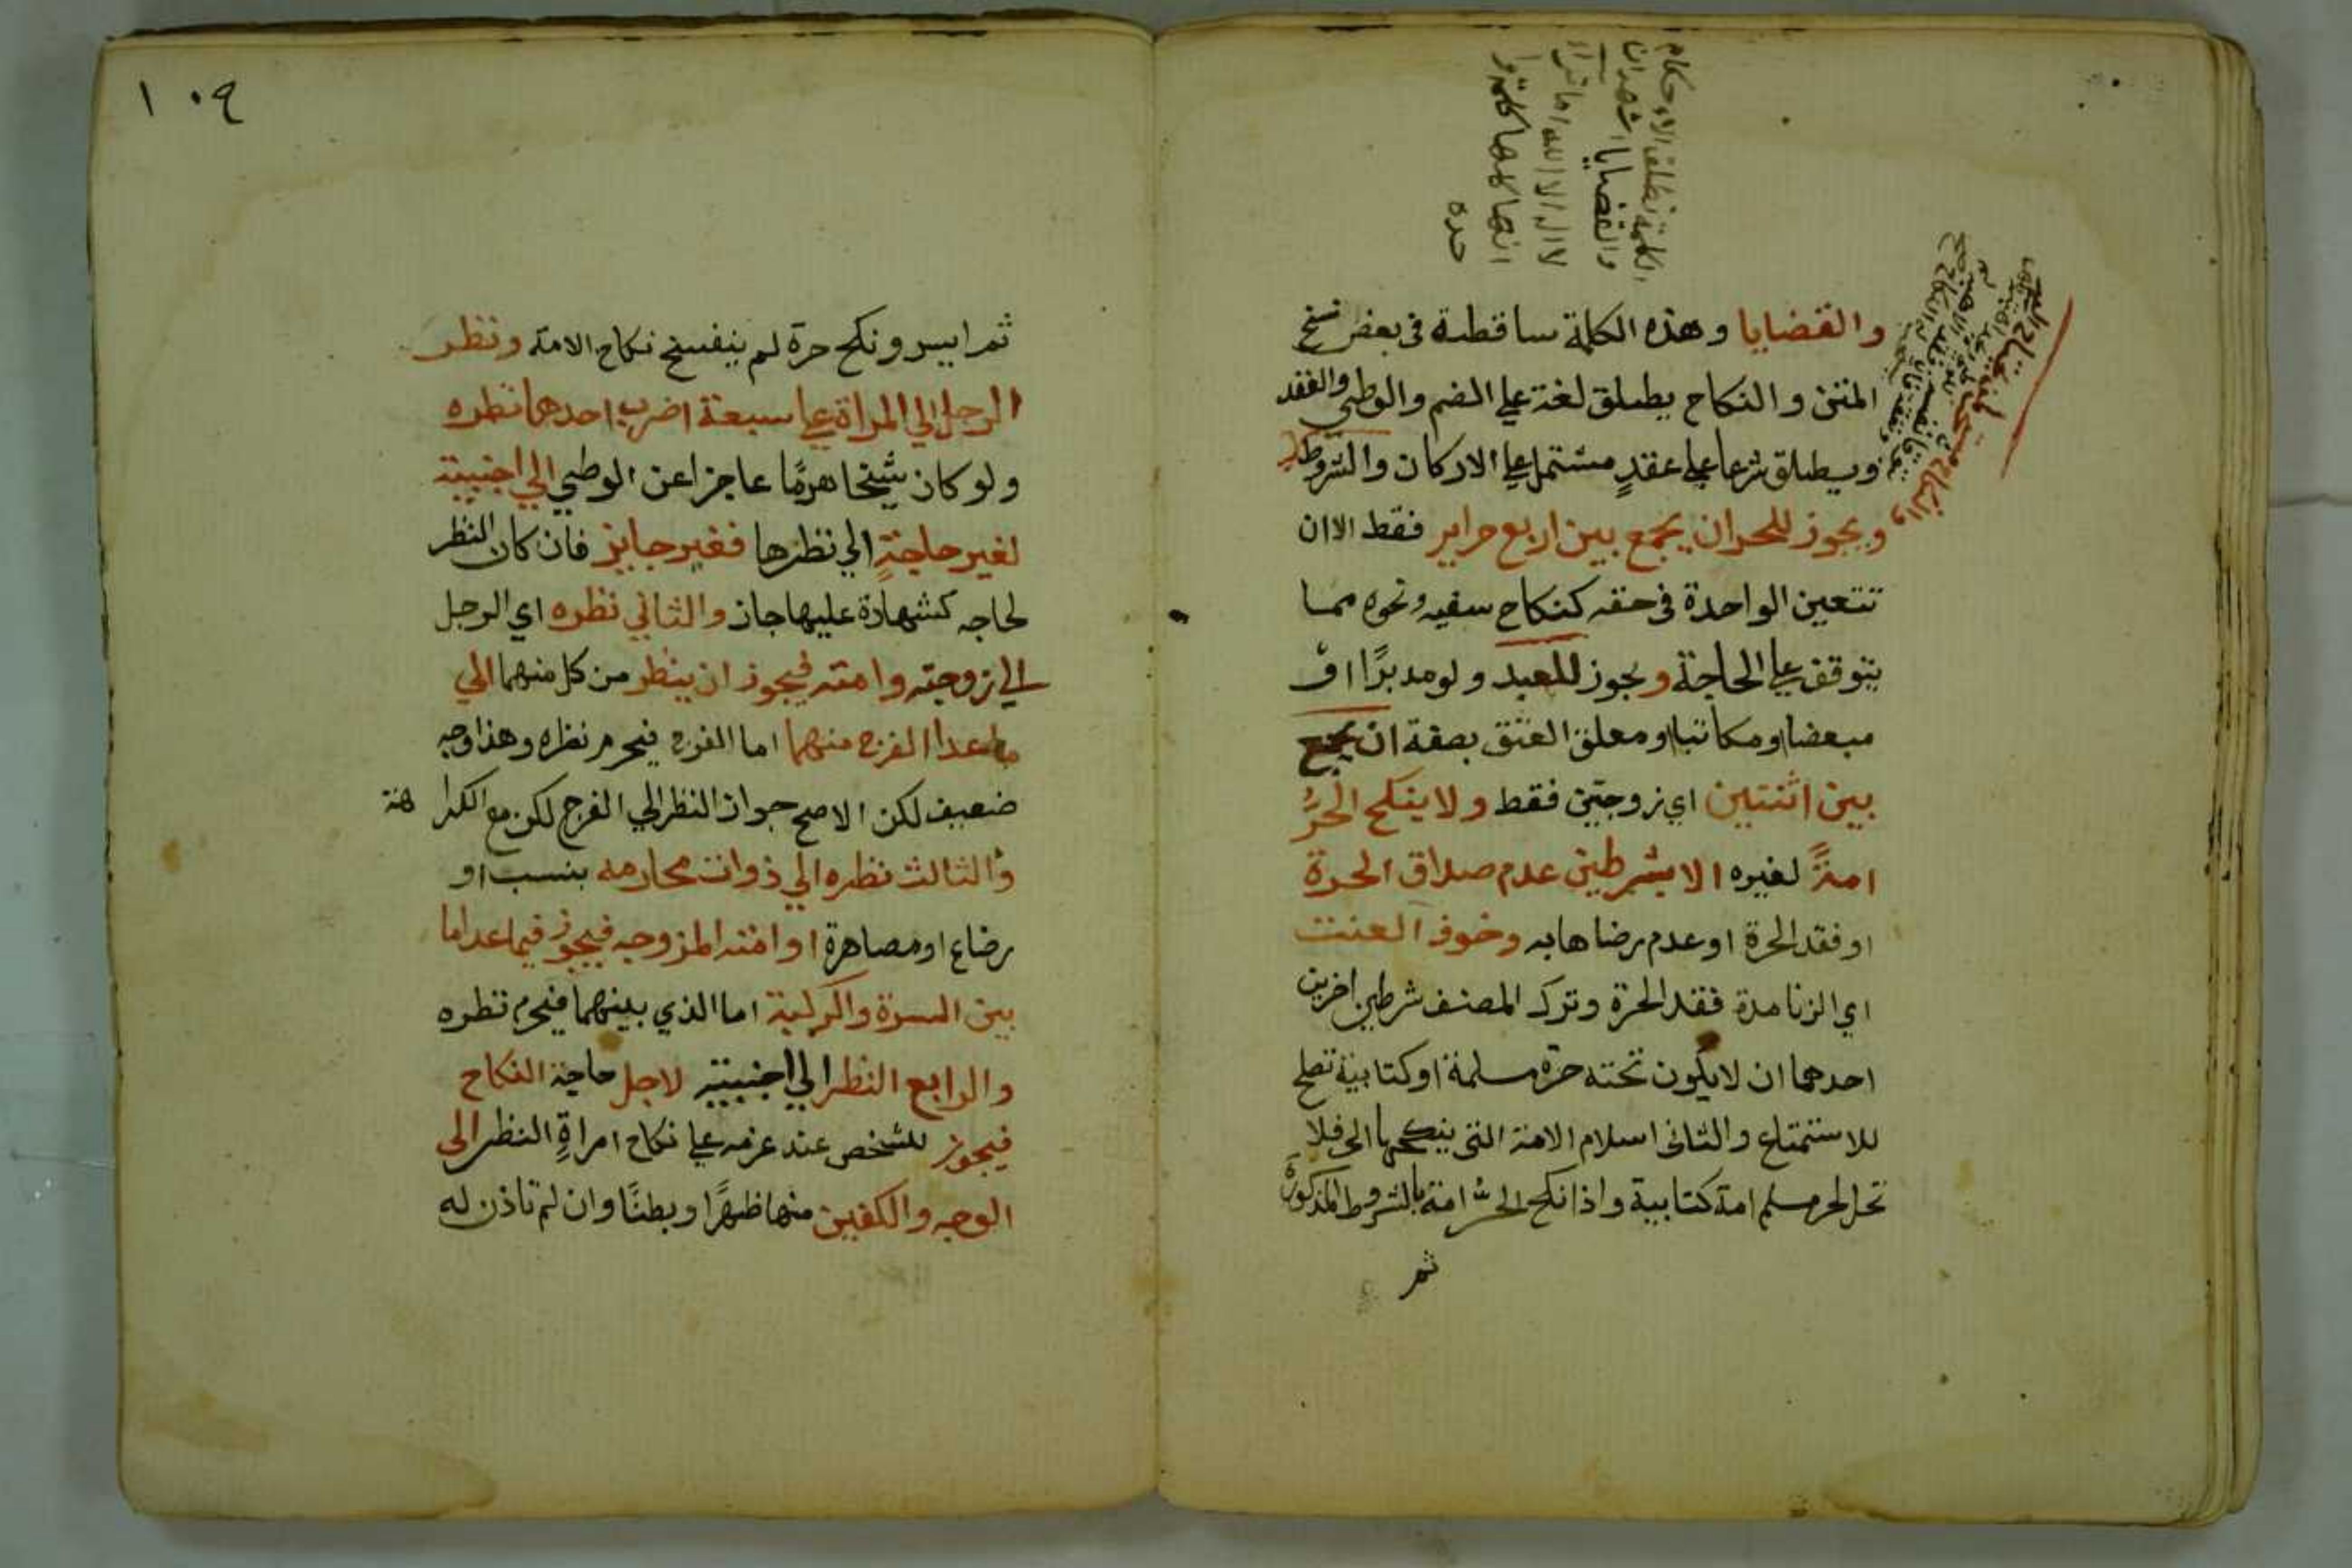 والقضايا وهذه الكلمة ساقطة في بعض نسخ
المتن والنكاح يطلق لغة علي الضم والوطي والعقد
ويطلق شرعا علي عقدٍ مشتمل علي الاركان والشروط
ويجوز للحر ان يجمع بين اربع حراير فقط الا ان
تتعين الواحدة في حقه كنكاح سفيه ونحوه مما
يتوقف علي الحاجة ويجوز للعبد ولو مدبرًا او
مبعضا او مكاتبا او معلق العتق بصفة ان يجمع
بين اثنتين اي زوجتين فقط ولا ينكح الحرُّ
امةً لغيره الا بشرطين عدم صداق الحرة
او فقد الحرة او عدم رضاها به وخوف العنت
اي الزنا مدة فقد الحرة وترك المصنف شرطين اخرين
احدهما ان لا يكون تحته حرة مسلمة او كتابية تصلح
للاستمتاع والثاني اسلام الامة التي ينكحها الحر فلا
تحل لحر مسلم امة كتابية واذا نكح الحرُّ امة بالشروط المذكورة
ثم
الكلمة تطلق الاحكام
والقضايا اشهد ان
لا اله الا الله
انها كلمة
١٠٩
ثم ايسر ونكح حرة لم ينفسخ نكاح الامة ونظر
الرجل الي المراة علي سبعة اضرب احدها نظره
ولو كان شيخا هرمًا عاجزا عن الوطي الي اجنبية
لغير حاجةٍ الي نظرها فغير جايز فان كان النظر
لحاجه كشهادة عليها جاز والثاني نظره اي الرجل
الي زوجته وامته فيجوز ان ينظر من كل منهما الي
ما عدا الفرج منهما اما الفرج فيحرم نظره وهذا وجه
ضعيف لكن الاصح جواز النظر الي الفرج لكن مع الكراهة
والثالث نظره الي ذوات محارمه بنسب او
رضاع او مصاهرة او امته المزوجه فيجوز فيما عدا ما
بين السرة والركبة اما الذي بينهما فيحرم نظره
والرابع النظر الي اجنبيته لاجل حاجة النكاح
فيجوز للشخص عند عزمه علي نكاح امراةٍ النظر الى
الوجه والكفين منها ظهرًا وبطنًا وان لم تاذن له